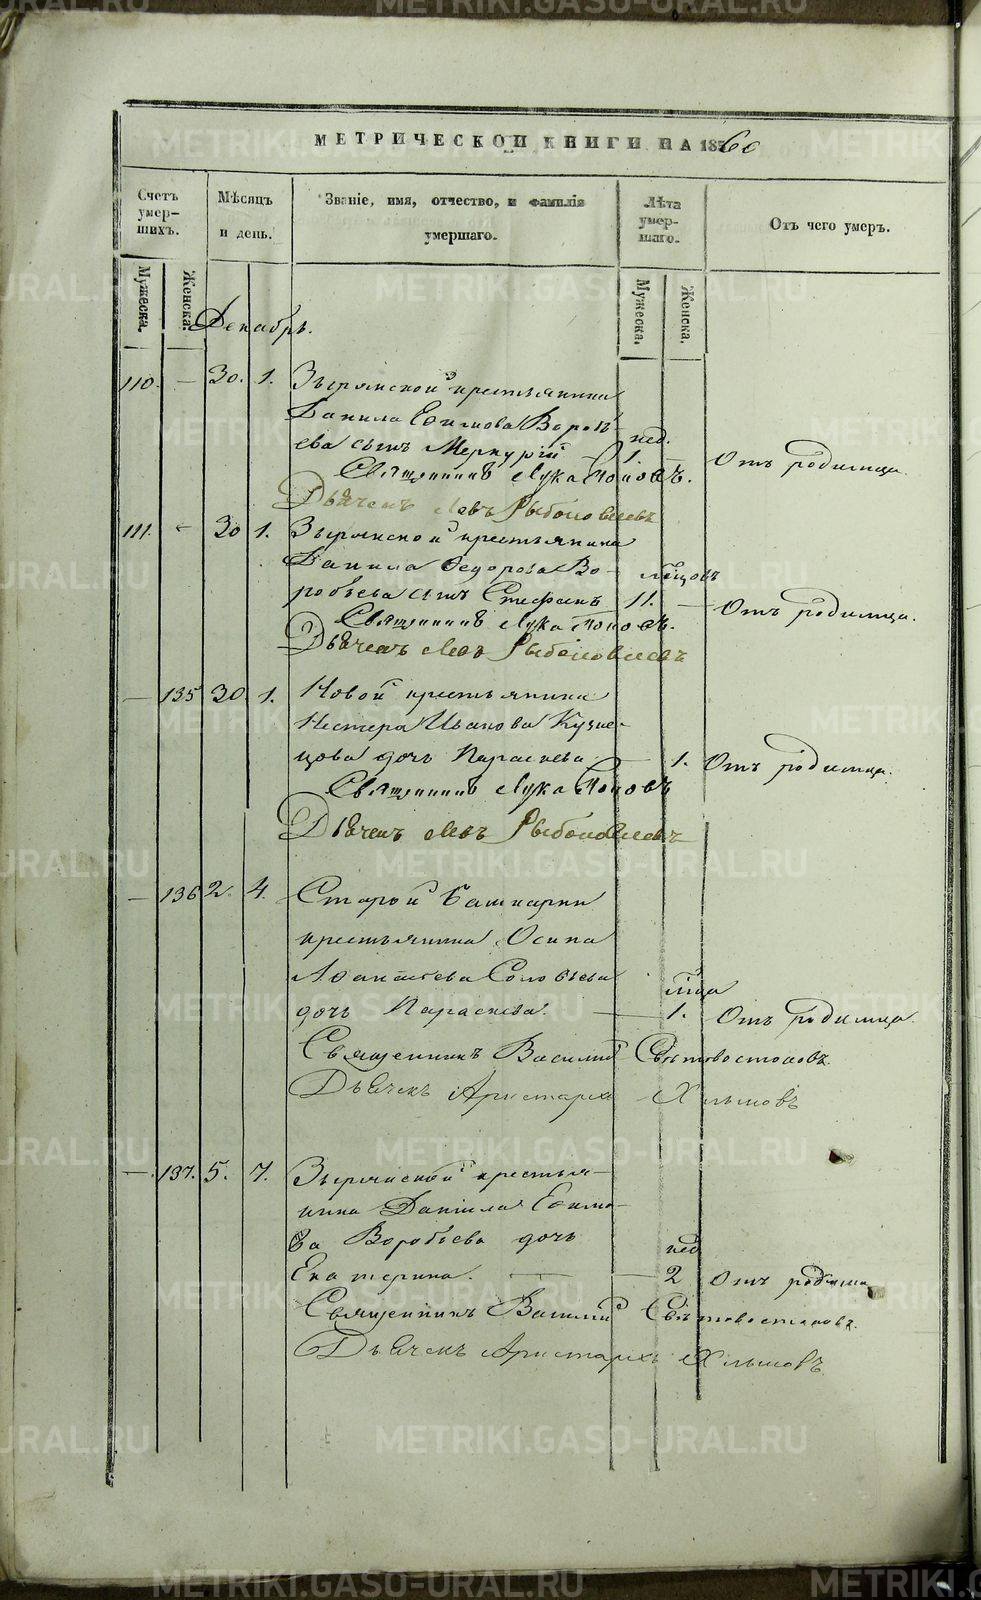 МЕТРИЧЕСКОЙ КНИГИ НА 1860
Счетъ умер-шихъ.
Мѣсяцъ и день.
Званіе, имя, отчество, и фамилія умершаго.
Лѣта умер-шаго.
Отъ чего умеръ.
Мужеска.
Женска.
Мужеска.
Женска.
Декабрь.
110. — 30. 1. Зырянской крестьянина
Данила Ефимова Воробь-
ева сынъ Меркурій нед. 1. Отъ родимца.
Священникъ Лука Поповъ.
Дьячекъ Левъ Рыболовлевъ
111. — 30 1. Зырянской крестьянина
Данила Федорова Во-
робьева сынъ Стефанъ мѣсцовъ 11. — Отъ родимца.
Священникъ Лука Поповъ.
Дьячекъ Левъ Рыболовлевъ
— 135 30. 1. Новой крестьянина
Нестера Иванова Кузне-
цова дочь Параскева — 1. Отъ родимца.
Священникъ Лука Поповъ
Дьячекъ Левъ Рыболовлевъ
— 136 2. 4. Старой Башкарки
крестьянина Осипа
Афанасьева Соловьева
дочь Параскева. — мсца 1. Отъ родимца.
Священникъ Василий Свѣтовостоковъ.
Дьячекъ Аристархъ Хлыновъ
— 137. 5. 7. Зырянской крестья-
нина Даніила Ефимо-
ва Воробьева дочь
Екатерина. — — нед 2 Отъ родимца
Священникъ Василий Свѣтовостоковъ.
Дьячекъ Аристархъ Хлыновъ
METRIKI.GASO-URAL.RU